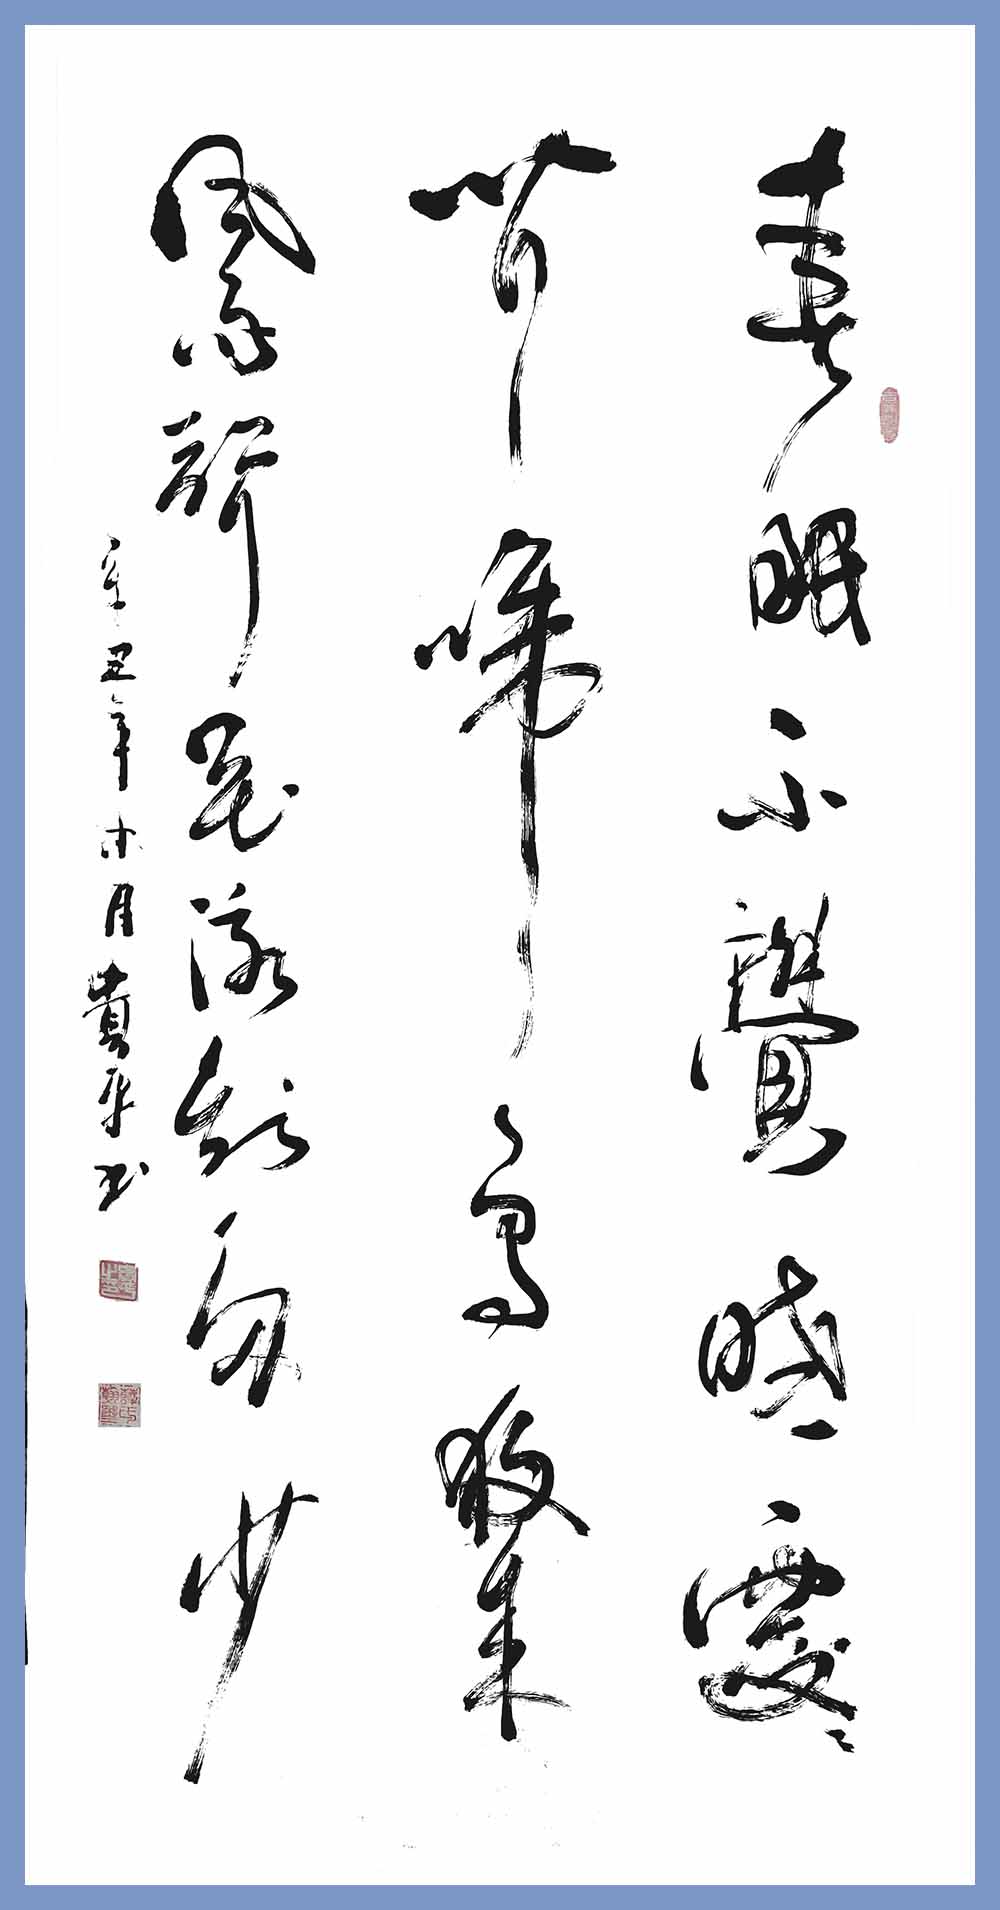 春眠不覺曉處々
聞啼鳥夜来
風雨聲花落知多少
辛丑年月貴平书